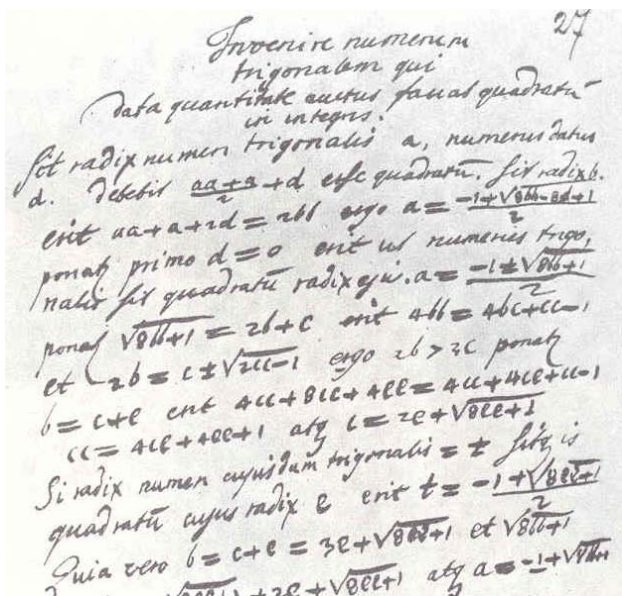 27
Invenire numerum
trigonalem qui
data quantitate auctus faciat quadratū
in integris.
Sit radix numeri trigonalis a, numerus datus
d. debebit (aa+a)/2 + d esse quadratū. sit radix b.
erit aa+a+2d=2bb ergo a= (-1+√8bb-8d+1)/2
ponatʒ primo d=0 erit ut numerus trigo,
nalis sit quadratū radix ejus. a= (-1±√8bb+1)/2
ponatʒ √8bb+1 = 2b+c erit 4bb=4bc+cc-1
et 2b=c±√2cc-1 ergo 2b>2c ponatʒ
b=c+e erit 4cc+8ce+4ee=4cc+4ce+cc-1
cc=4ce+4ee+1 atq c=2e+√8ee+1
Si radix numeri cujusdam trigonalis=t sitq is
quadratū cujus radix e erit t= (-1+√8ee+1)/2
Quia vero b=c+e=3e+√8ee+1 et √8bb+1
+√8ee+1 atq a= -1+√8bb+1